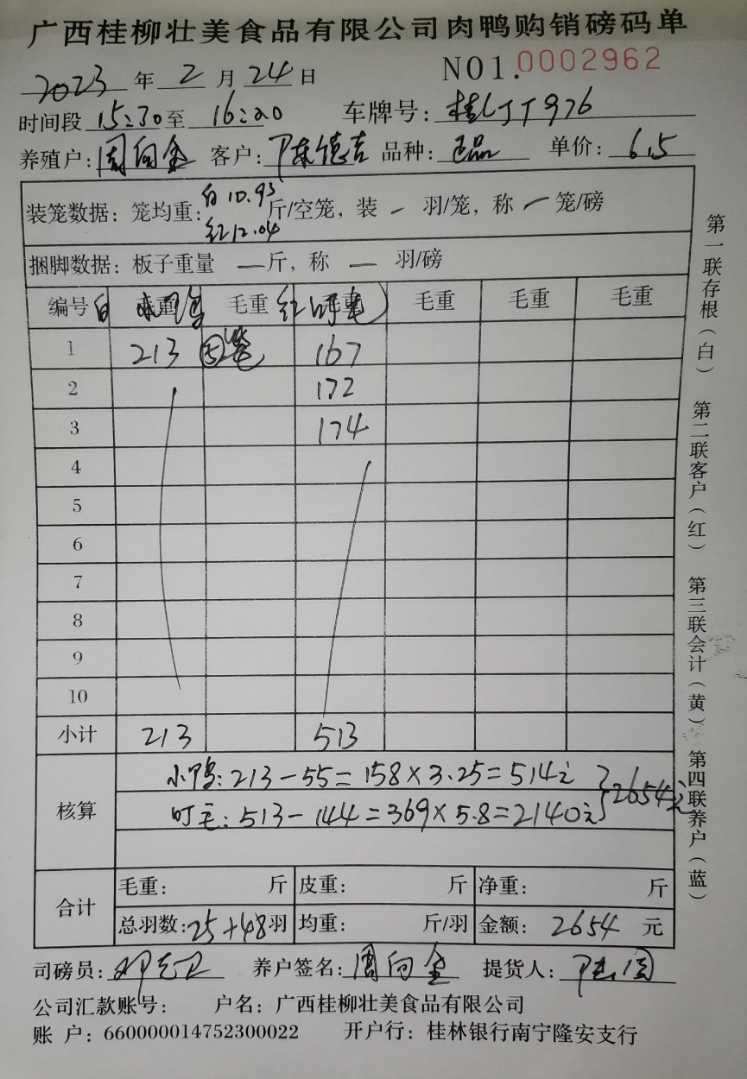 广西桂柳壮美食品有限公司肉鸭购销磅码单
2023 年 2 月 24 日 NO1.0002962
时间段 15:30 至 16:20 车牌号:
养殖户:周向金 客户:陈德吉 品种:正品 单价:6.5
装笼数据:笼均重:白10.95 红12.04 斤/空笼,装 — 羽/笼,称 — 笼/磅
捆脚数据:板子重量 — 斤,称 — 羽/磅
编号 白 毛重 毛重 红 毛重 毛重 毛重 毛重
1 213 ⑤笼 167
2 172
3 174
4
5
6
7
8
9
10
小计 213 513
核算 小鸭:213-55=158×3.25=514元 }2654元
叮毛:513-144=369×5.8=2140元
合计 毛重: 斤 皮重: 斤 净重: 斤
总羽数:25+48羽 均重: 斤/羽 金额: 2654 元
司磅员: 养户签名:周向金 提货人:
公司汇款账号: 户名:广西桂柳壮美食品有限公司
账 户:660000014752300022 开户行:桂林银行南宁隆安支行
第一联存根(白) 第二联客户(红) 第三联会计(黄) 第四联养户(蓝)